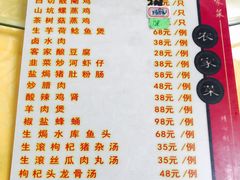 茶树菇蒸鸡
生芋荷鲶鱼煲 68元/例
卤水肉 38元/例
客家酸豆腐 28元/例
韭菜炒河虾仔 38元/例
盐焗猪肚粉肠 58元/例
炒腊肉 48元/例
酸辣鸡肾 38元/例
羊肉煲 88元/例
椒盐蜂蛹 98元/例
生焗水库鱼头 68元/例
生滚枸杞猪杂汤 35元/例
生滚丝瓜肉丸汤 35元/例
枸杞头龙骨汤 48元/例
农家菜